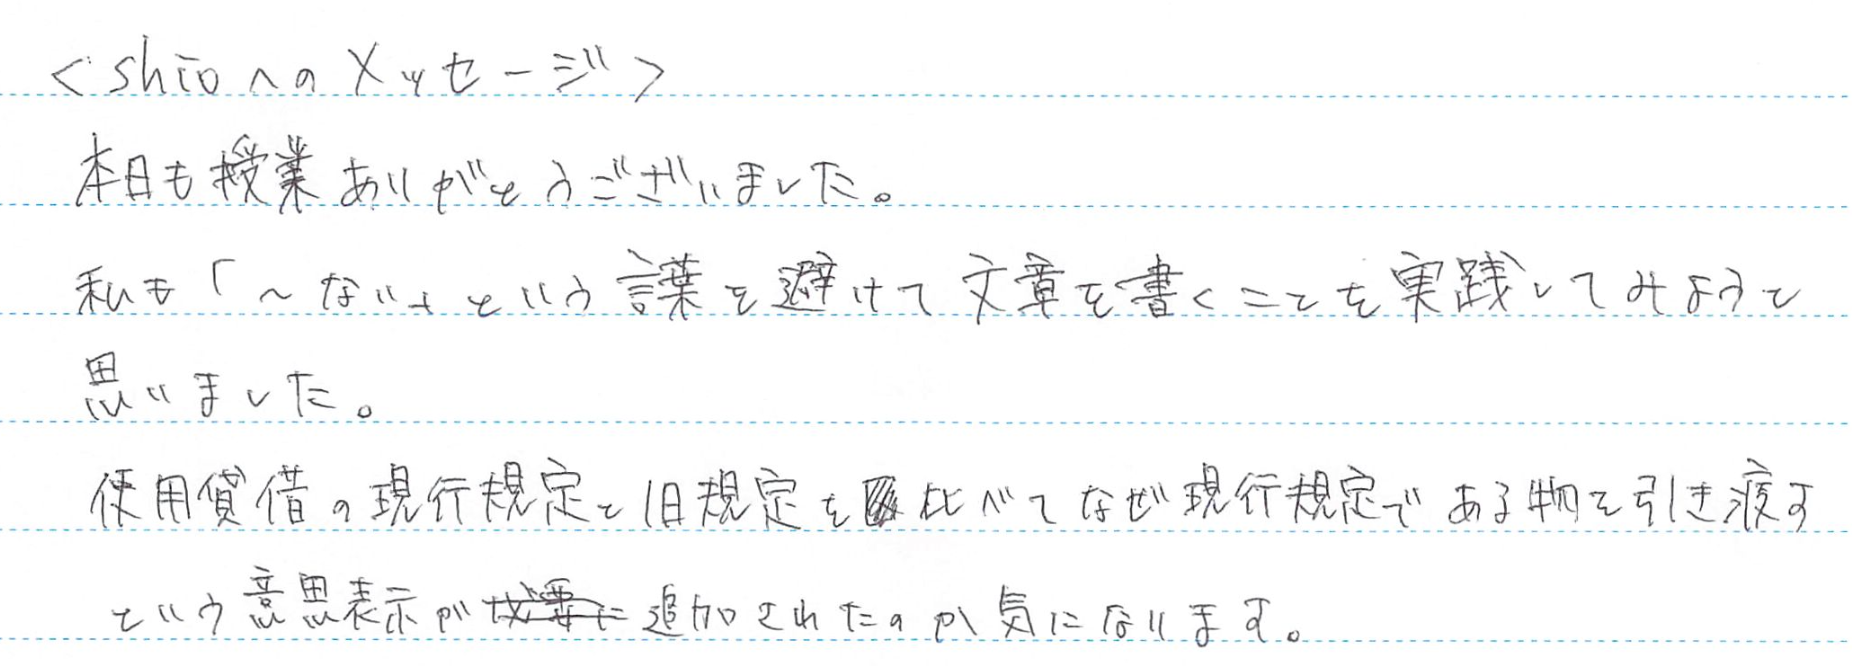 <shioへのメッセージ>
本日も授業ありがとうございました。
私も「〜ない」という言葉を避けて文章を書くことを実践してみようと
思いました。
使用貸借の現行規定と旧規定を比べてなぜ現行規定である物を引き渡す
という意思表示が追加されたのか気になります。